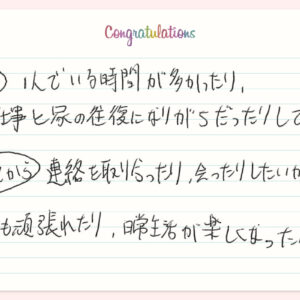 Congratulations
んでいる時間が多かったり、
仕事と家の往復になりがちだったりして
から 連絡を取り合ったり、会ったりしたいか
も頑張れたり、日常生活が楽しくなった